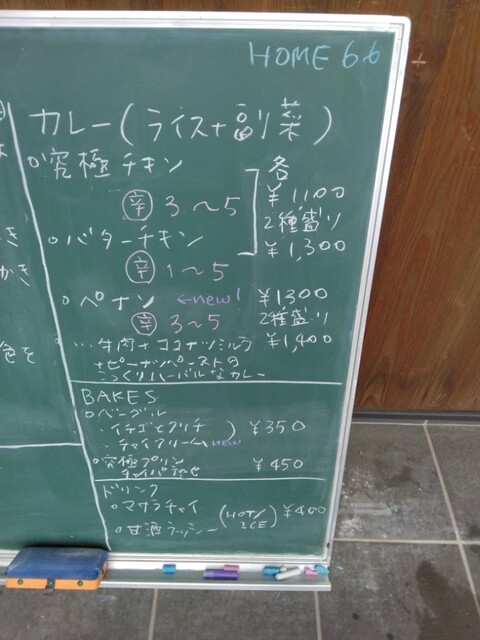 HOME 6.6
カレー(ライス+副菜)
○究極チキン
各
¥1,100
辛 3〜5
2種盛り
¥1,300
○バターチキン
辛 1〜5
○ペナン ←new! ¥1300
辛 3〜5
2種盛り
¥1,400
…牛肉+ココナツミルク
+ピーナッツペーストの
こっくりハーバルなカレー
BAKES
○ベーグル
・イチゴとクリチ
・チャイクリーム NEW
) ¥350
○究極プリン ¥450
ドリンク
○マサラチャイ
○甘酒ラッシー
(HOT/ICE) ¥400
き
かき
食を